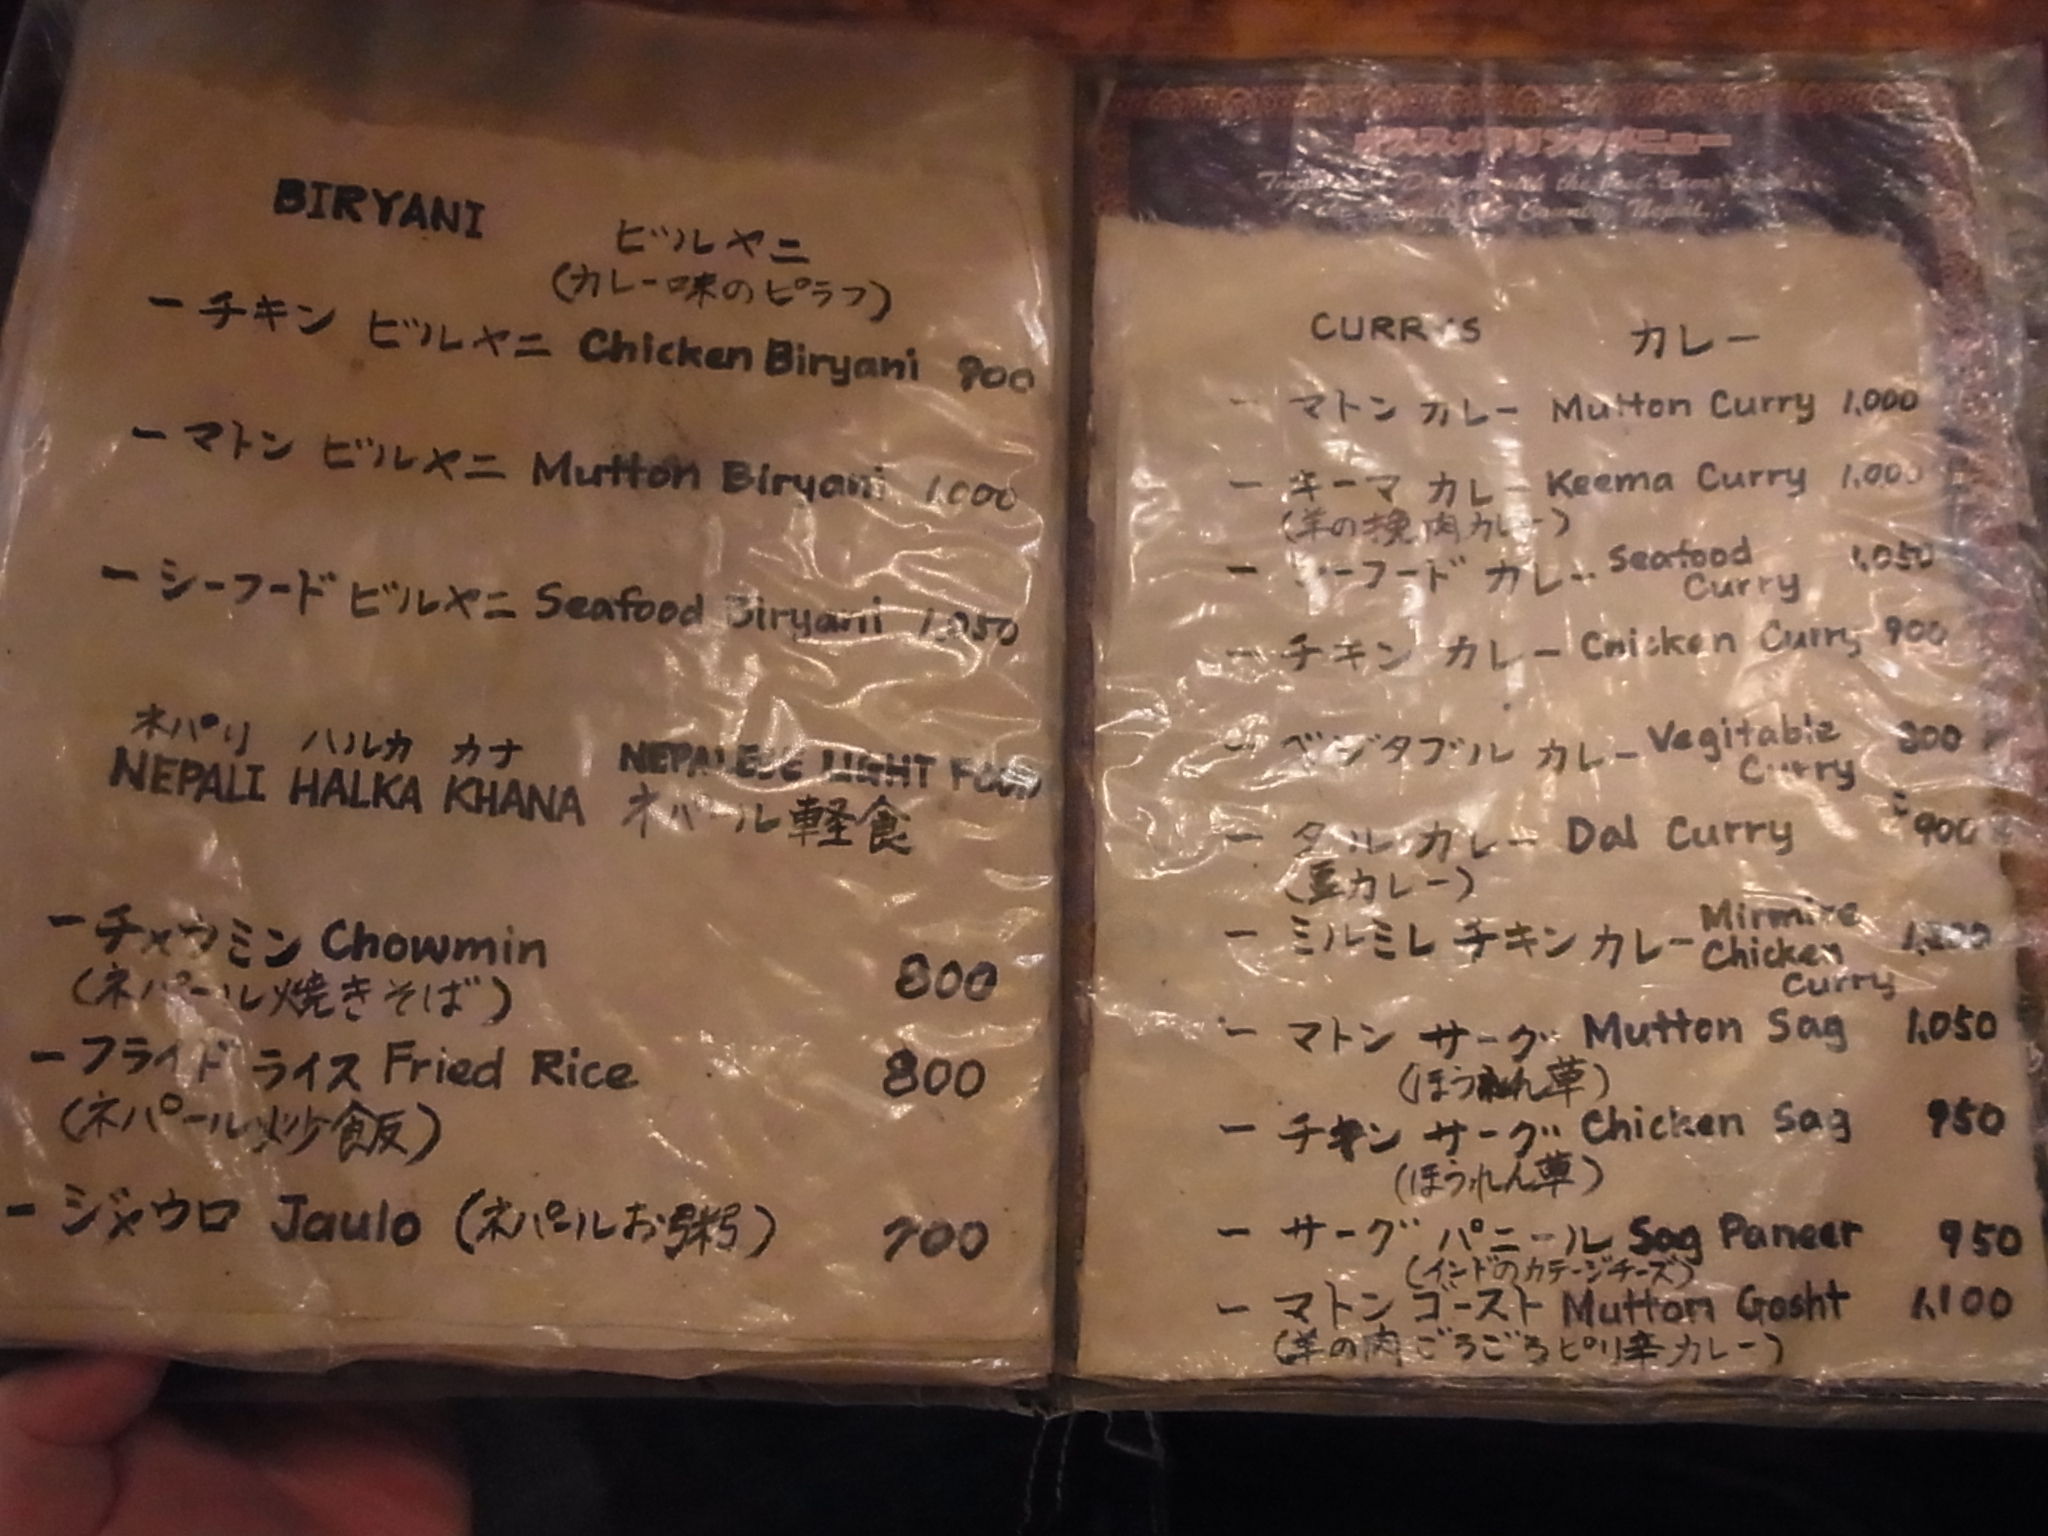 BIRYANI ビルヤニ
(カレー味のピラフ)
ー チキン ビルヤニ Chicken Biryani 900
ー マトン ビルヤニ Mutton Biryani 1,000
ー シーフード ビルヤニ Seafood Biryani 1,050
ネパリ ハルカ カナ
NEPALI HALKA KHANA NEPALESE LIGHT FOOD
ネパール軽食
ー チャウミン Chowmin 800
(ネパール焼きそば)
ー フライド ライス Fried Rice 800
(ネパール炒飯)
ー ジャウロ Jaulo (ネパールお粥) 700
オススメドリンクメニュー
CURRYS カレー
ー マトン カレー Mutton Curry 1,000
ー キーマ カレー Keema Curry 1,000
(羊の挽肉カレー)
ー シーフード カレー Seafood Curry 1,050
ー チキン カレー Chicken Curry 900
ー ベジタブル カレー Vegitable Curry 800
ー ダル カレー Dal Curry 900
(豆カレー)
ー ミルミレ チキン カレー Mirmire Chicken Curry
ー マトン サーグ Mutton Sag 1,050
(ほうれん草)
ー チキン サーグ Chicken Sag 950
(ほうれん草)
ー サーグ パニール Sag Paneer 950
(インドのカテージチーズ)
ー マトン ゴースト Mutton Gosht 1,100
(羊の肉ごろごろピリ辛カレー)